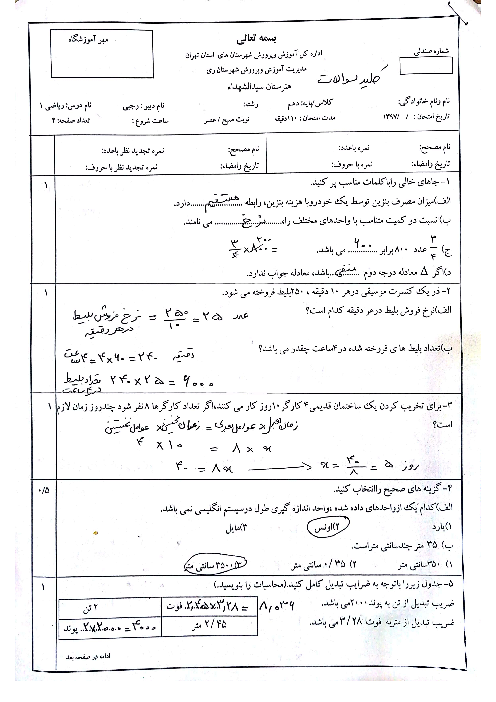 بسمه تعالی
مهر آموزشگاه
اداره کل آموزش وپرورش شهرستان های استان تهران
مدیریت آموزش وپرورش شهرستان ری
هنرستان سیدالشهداء
شماره صندلی
کلید سوالات
نام ونام خانوادگی: کلاس/پایه: دهم رشته: نام دبیر: رجبی نام درس: ریاضی ۱
تاریخ امتحان: / / ۱۳۹۷ مدت امتحان: ۱۱۰دقیقه نوبت صبح/عصر ساعت شروع: تعداد صفحه: ۴
نام مصحح: نمره باعدد: نام مصحح: نمره تجدید نظر باعدد:
تاریخ وامضاء: نمره با حروف: تاریخ وامضاء: نمره تجدید نظر با حروف:
۱-جاهای خالی راباکلمات مناسب پر کنید. ۱
الف)میزان مصرف بنزین توسط یک خودروبا هزینه بنزین، رابطه ....مستقیم.... دارد.
ب) نسبت دو کمیت متناسب با واحدهای مختلف را،....نرخ.... می نامند.
ج) ۳/۴ عدد ۸۰۰ برابر ...۶۰۰... می باشد. ۳/۴ × ۸۰۰ =
د)اگر Δ معادله درجه دوم ..منفی..باشد، معادله جواب ندارد.
۲-در یک کنسرت موسیقی درهر ۱۰ دقیقه ، ۲۵۰بلیط فروخته می شود. ۱
الف)نرخ فروش بلیط درهر دقیقه کدام است؟ نرخ فروش بلیط در هر دقیقه = ۲۵۰/۱۰ = ۲۵ عدد
ب)تعداد بلیط های فروخته شده در ۴ساعت چقدر می باشد؟ ۴ ساعت = ۴×۶۰ = ۲۴۰ دقیقه
۲۴۰ × ۲۵ = ۶۰۰۰ تعداد بلیط در ۴ ساعت
۳-برای تخریب کردن یک ساختمان قدیمی۴ کارگر ۱۰روز کار می کنند.اگر تعداد کارگرها ۸نفر شود چندروز زمان لازم ۱
است؟
۴ × ۱۰ = ۸ × x
۴۰ = ۸x → x = ۴۰/۸ = ۵ روز
۴-گزینه های صحیح راانتخاب کنید. ۰/۵
الف)کدام یک ازواحدهای داده شده ،واحد اندازه گیری طول دوسیستم انگلیسی نمی باشد.
۱)یارد ۲)اونس ۳)مایل
ب) ۳۵ متر چندسانتی متراست.
۱) ۳۵۰سانتی متر ۲) ۰/۳۵ سانتی متر ۳)۳۵۰۰ سانتی متر
۵-جدول زیررا باتوجه به ضرایب تبدیل کامل کنید.(محاسبات را بنویسید.) ۱
ضریب تبدیل از تن به پوند ۲۰۰۰می باشد.
ضریب تبدیل از متر به فوت ۳/۲۸ می باشد.
۲ تن ۲/۴۵×۳/۲۸ = فوت ۸,۰۳۶
۲×۲۰۰۰=۴۰۰۰ پوند ۲/۴۵ متر
ادامه در صفحه بعد